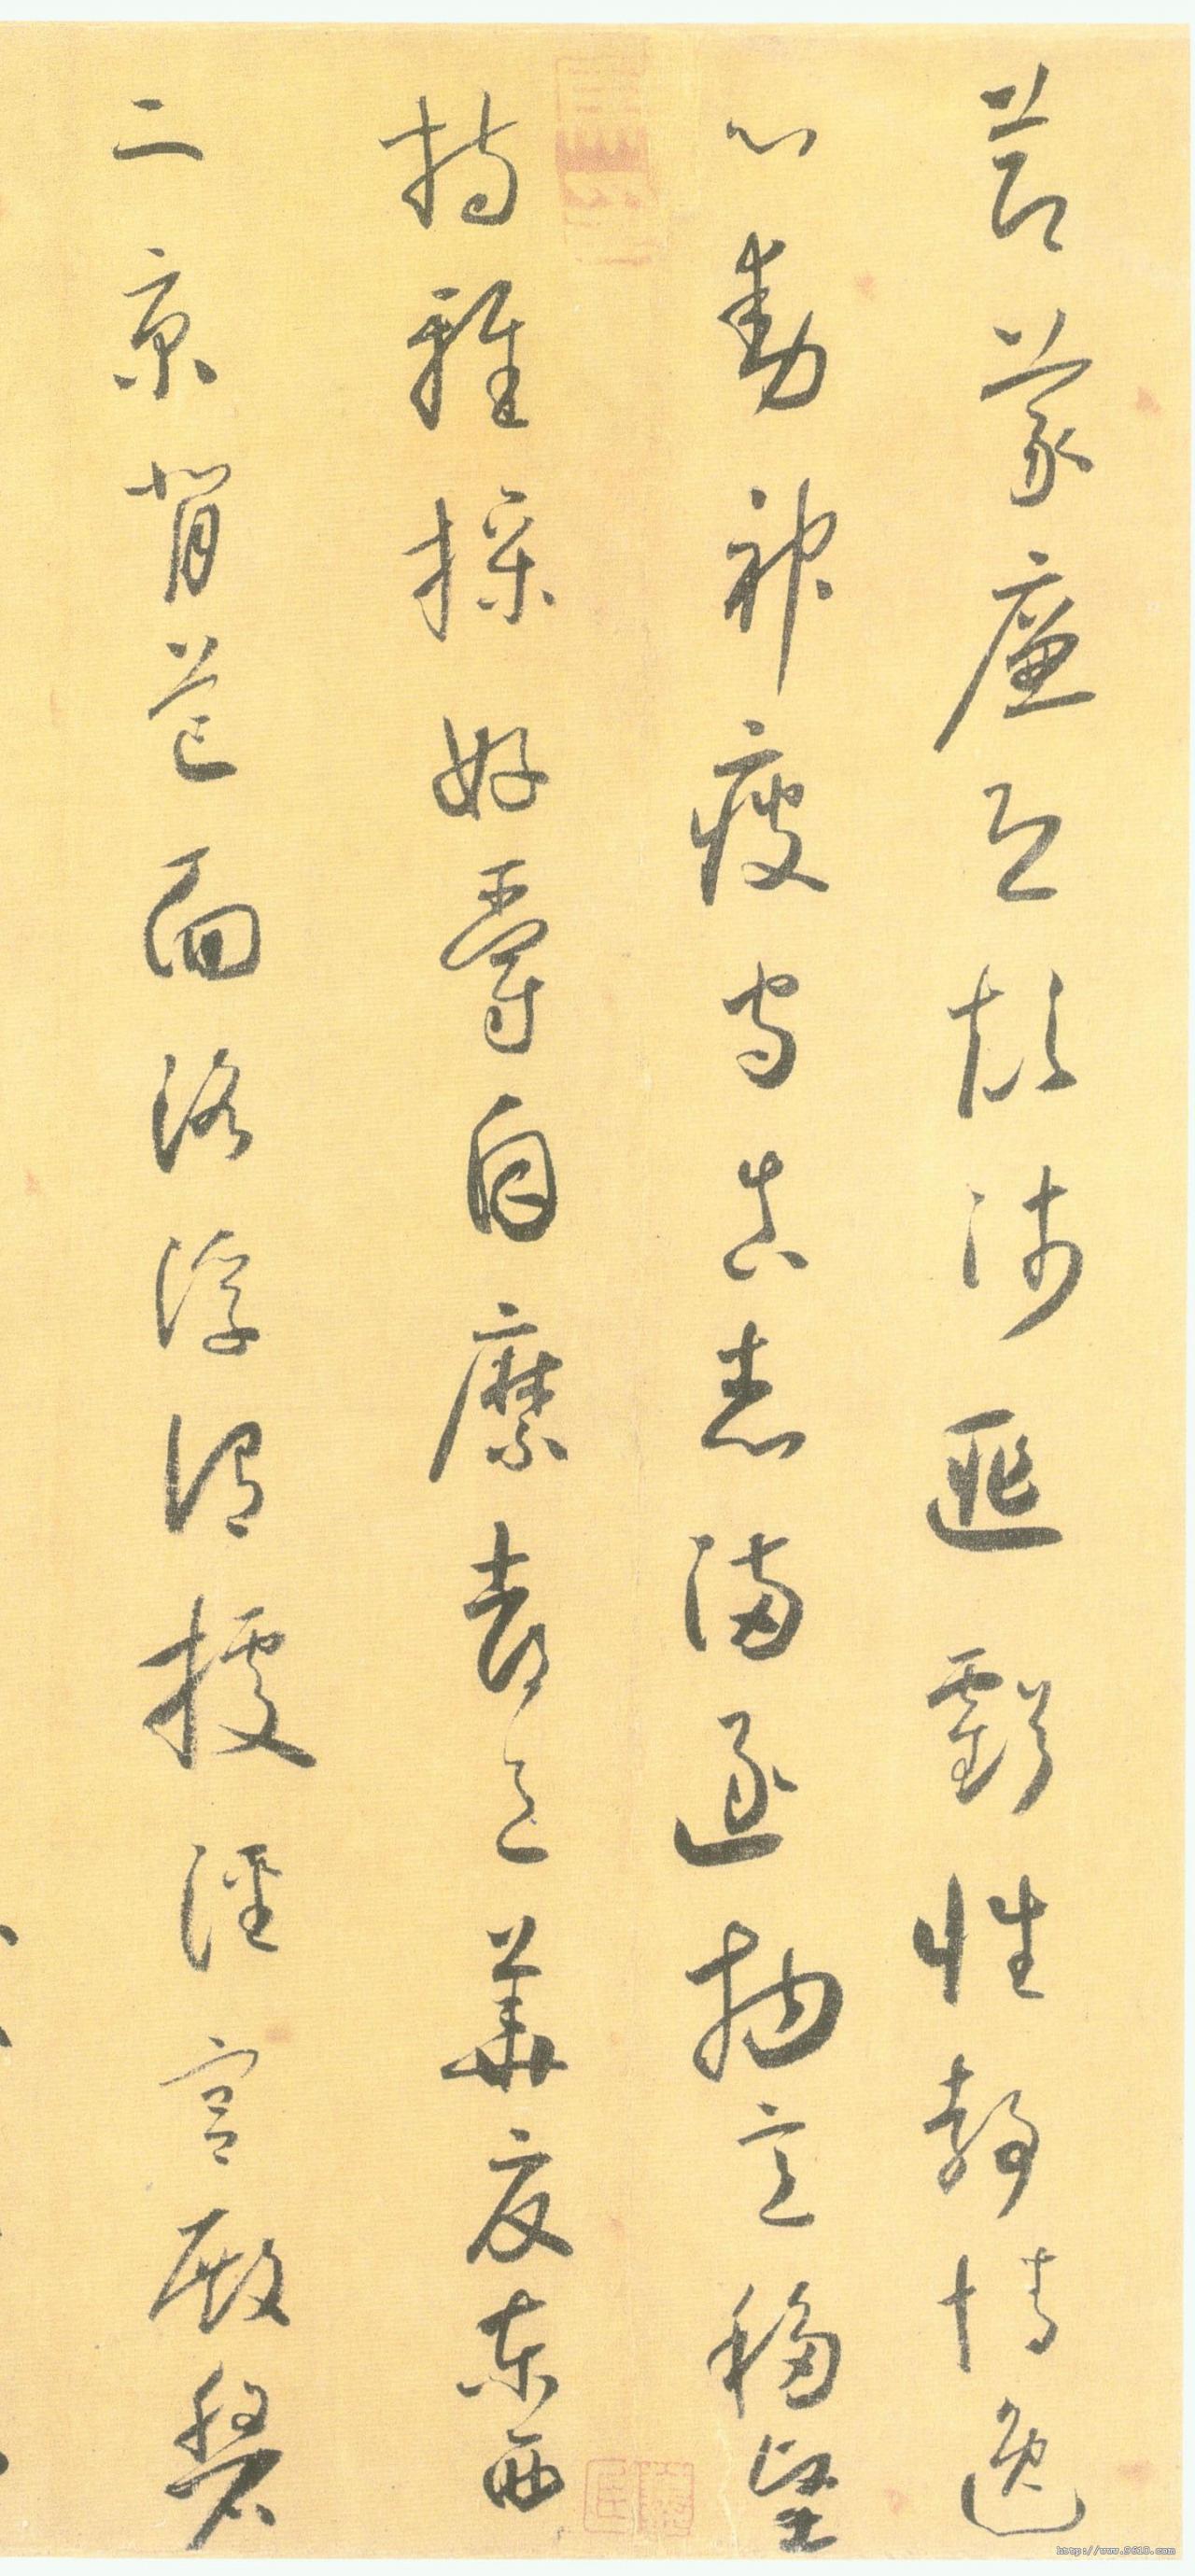 節義廉退顛沛匪虧性靜情逸
心動神疲守真志滿逐物意移堅
持雅操好爵自縻都邑華夏東西
二京背芒面洛浮渭據涇宮殿磐
http://www.9610.com